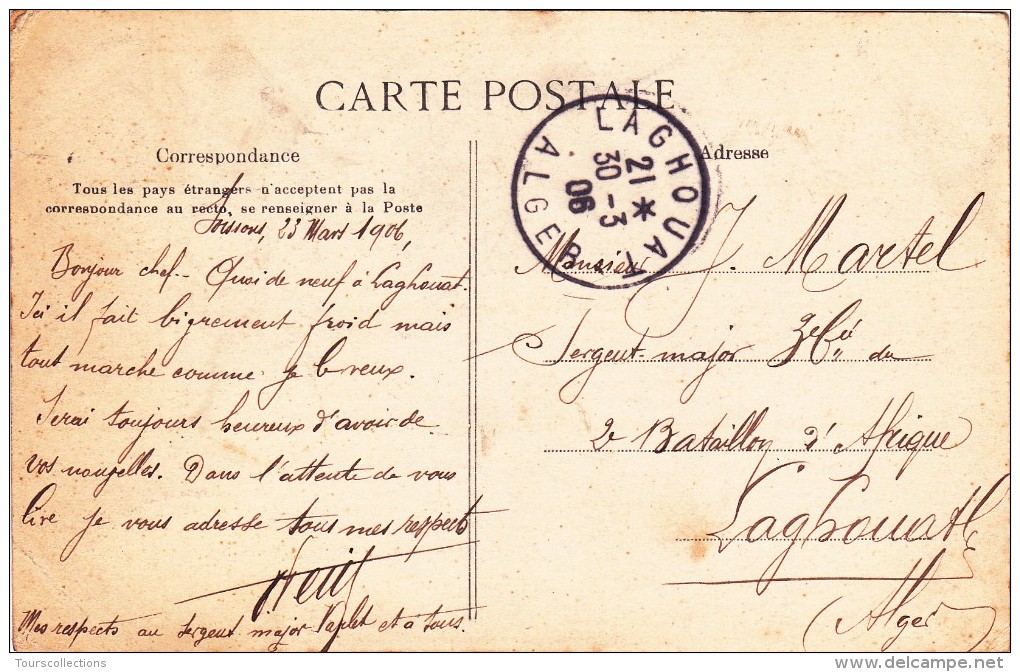 CARTE POSTALE
Correspondance
Tous les pays étrangers n'acceptent pas la
correspondance au recto, se renseigner à la Poste
Soissons, 23 Mars 1906,
Bonjour chef - Quoi de neuf à Laghouat.
Ici il fait bigrement froid mais
tout marche comme je le veux.
Serai toujours heureux d'avoir de
vos nouvelles. Dans l'attente de vous
lire je vous adresse tous mes respects
Mes respects au sergent major et à tous.
LAGHOUAT
21 *
30 - 3
06
ALGER
Adresse
Monsieur J. Martel
Sergent-major 3e Cie du
2e Bataillon d'Afrique
Laghouat
(Alger)
Tourscollections
delcampe.net